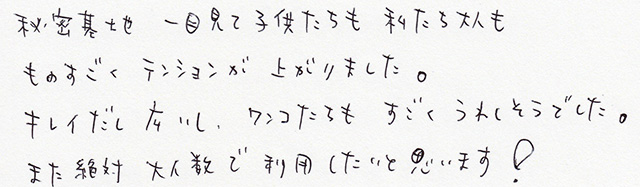 秘密基地 一目見て子供たちも 私たち大人も
ものすごく テンションが 上がりました。
キレイだし 広いし、ワンコたちも すごく うれしそうでした。
また絶対 大人数で 利用したいと思います!